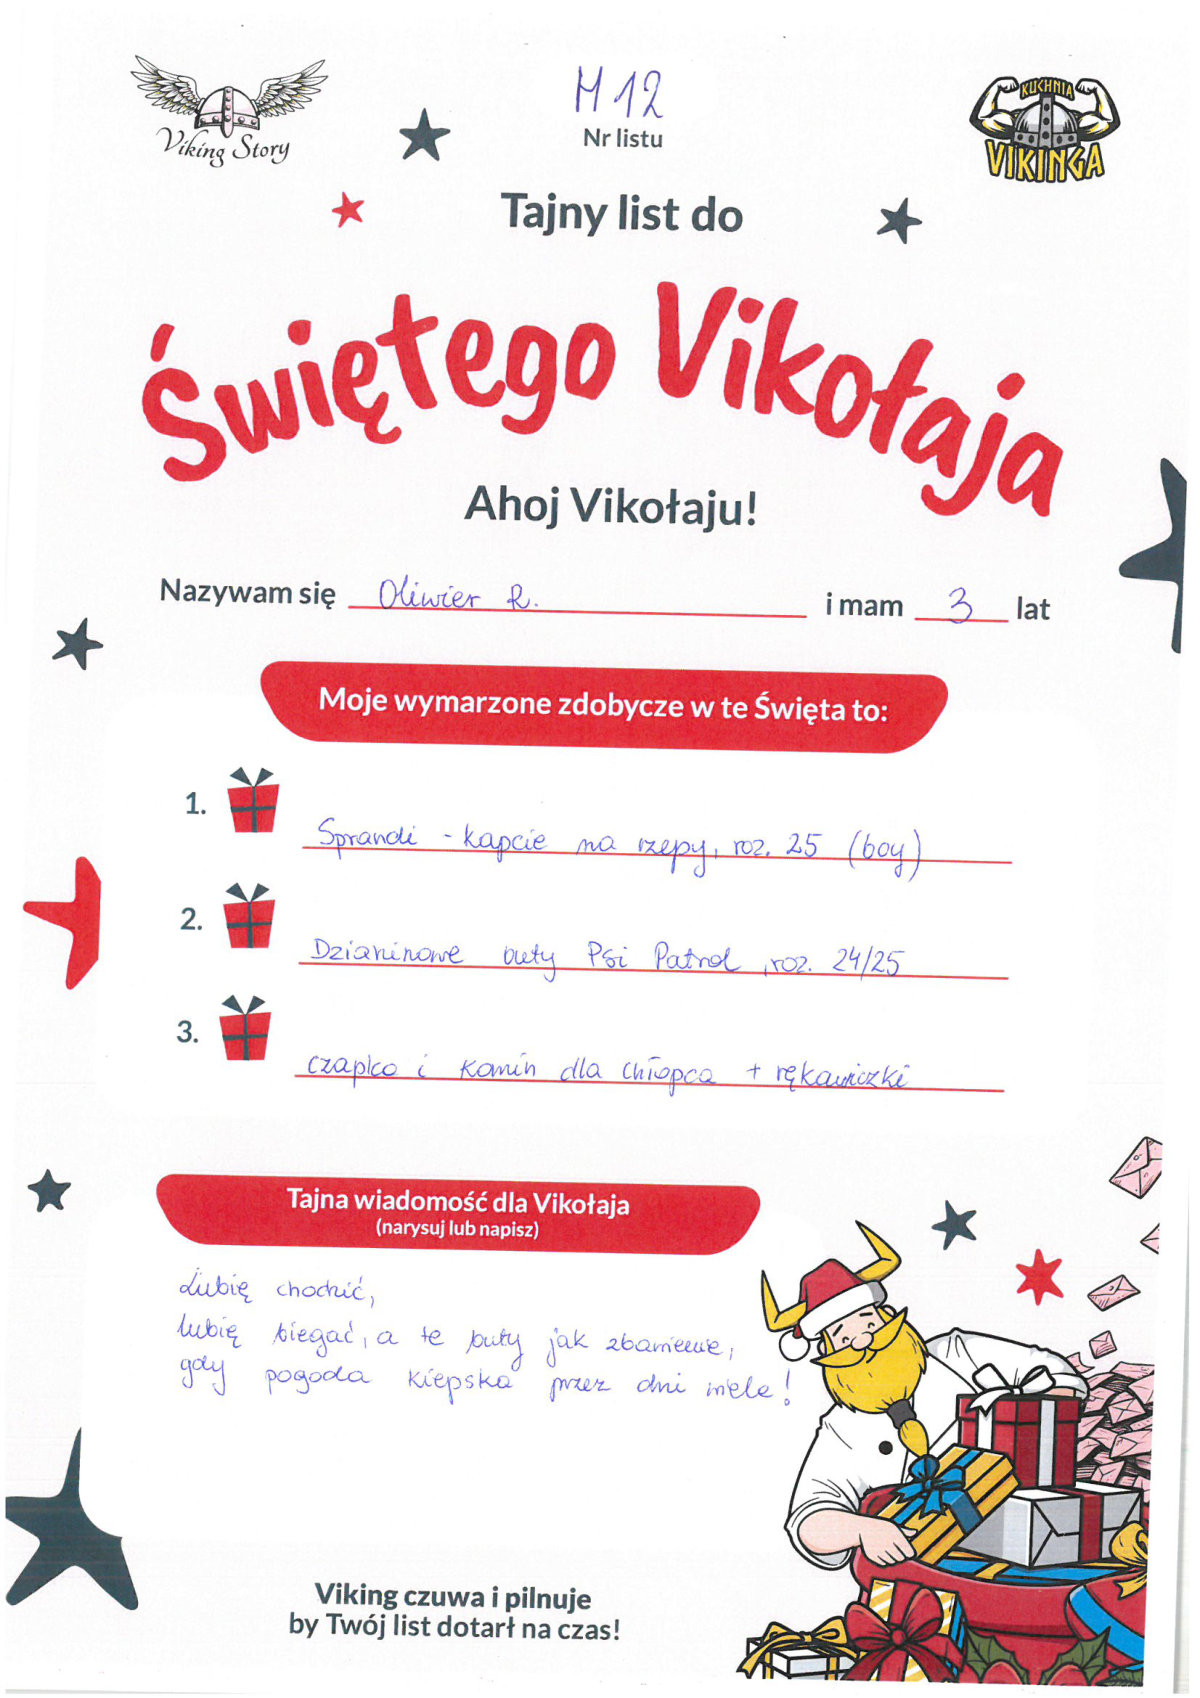 Viking Story
M 12
Nr listu
KUCHNIA
VIKINGA
Tajny list do
Świętego Vikołaja
Ahoj Vikołaju!
Nazywam się Oliwier R. i mam 3 lat
Moje wymarzone zdobycze w te Święta to:
1. Sprandi - kapcie na rzepy, roz. 25 (boy)
2. Dzianinowe buty Psi Patrol, roz. 24/25
3. czapka i komin dla chłopca + rękawiczki
Tajna wiadomość dla Vikołaja
(narysuj lub napisz)
Lubię chodzić,
lubię biegać, a te buty jak zbawienie,
gdy pogoda kiepska przez dni wiele!
Viking czuwa i pilnuje
by Twój list dotarł na czas!